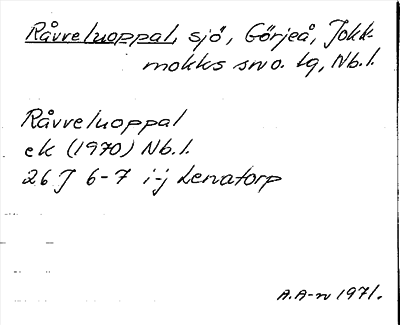 Råvveluoppal, sjö, Görjeå, Jokk-
mokks sn o. lg, Nb.l.
Råvveluoppal
ek (1970) Nb.l.
26 J 6-7 i-j Lenatorp
A.A-n 1971.